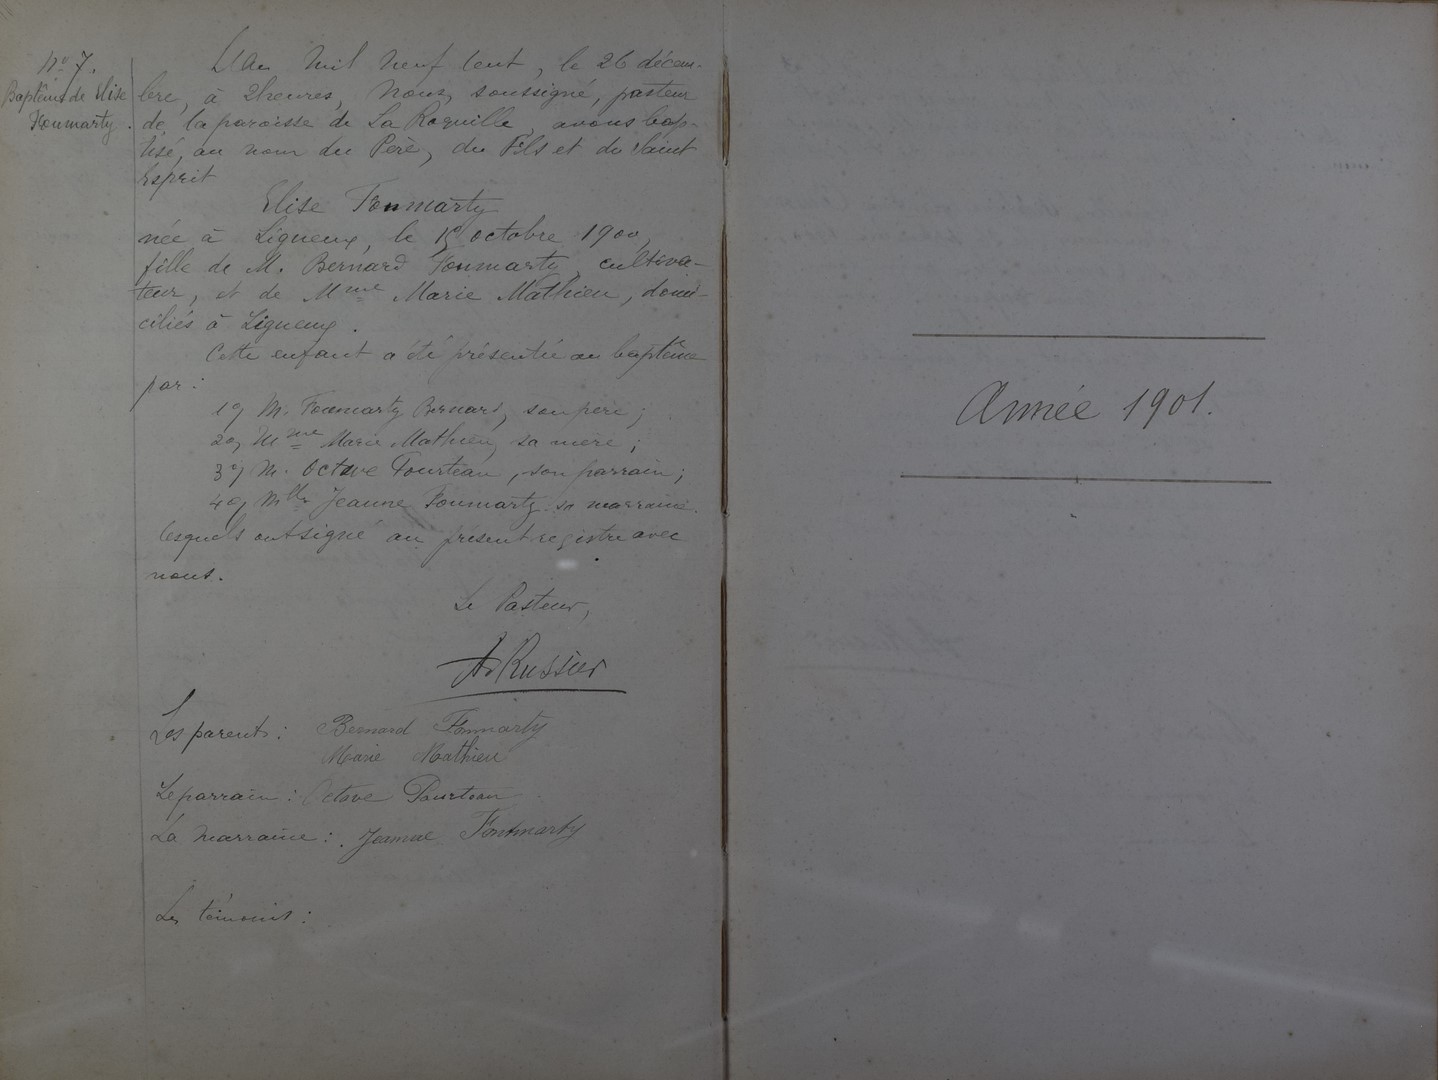 No 7.
Baptême de Elise
Fonmarty.
L'an mil neuf cent, le 26 décem-
bre, à 2 heures, Nous, soussigné, pasteur
de la paroisse de La Roquille avons bap-
tisé, au nom du Père, du Fils et du Saint
Esprit
Elise Fonmarty
née à Ligueux, le 15 octobre 1900,
fille de M. Bernard Fonmarty, cultiva-
teur, et de Mme Marie Mathieu, domi-
ciliés à Ligueux.
Cette enfant a été présentée au baptême
par :
1o, M. Fonmarty Bernard, son père ;
2o, Mme Marie Mathieu, sa mère ;
3o, M. Octave Pourteau, son parrain ;
4o, Mlle Jeanne Fonmarty sa marraine.
lesquels ont signé au présent registre avec
nous.
Le Pasteur,
Ad Russier
Les parents : Bernard Fonmarty
Marie Mathieu
Le parrain : Octave Pourteau
La marraine : Jeanne Fontmarty
Les témoins :
Année 1901.